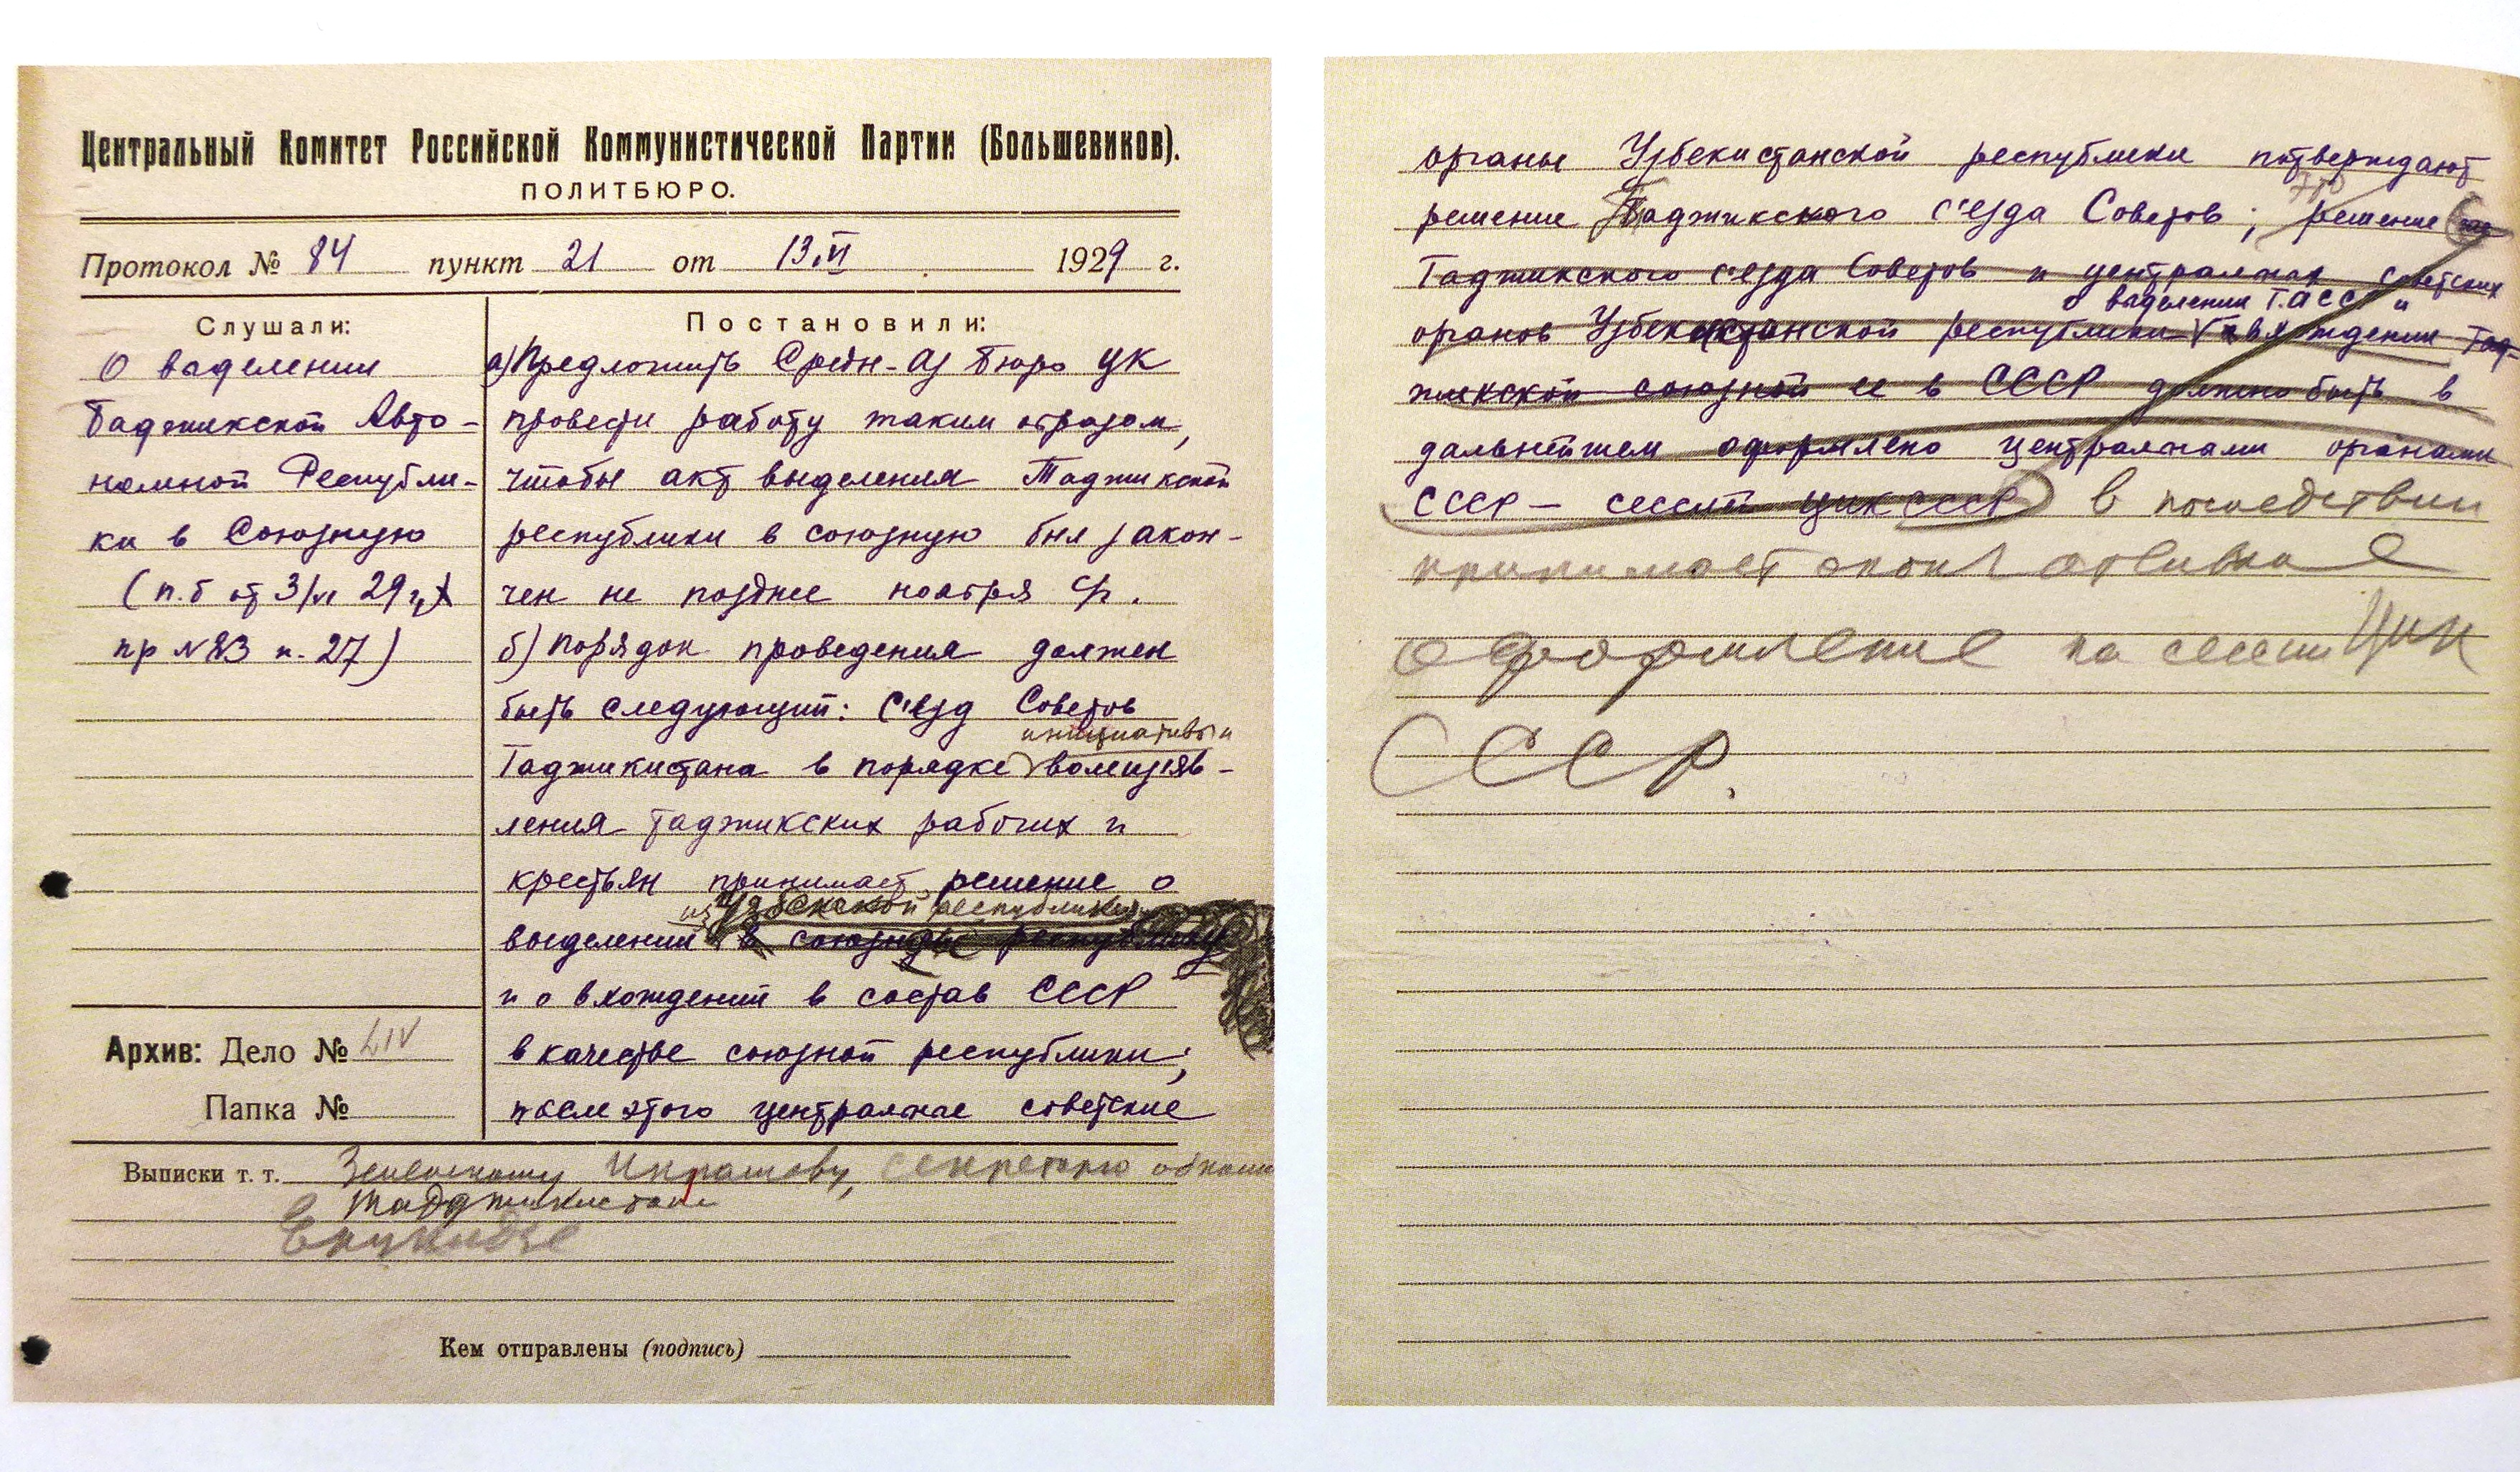 Центральный Комитет Российской Коммунистической Партии (Большевиков).
ПОЛИТБЮРО.
Протокол № 84 пункт 21 от 13.VI 1929 г.
Слушали:
О выделении
Таджикской Авто-
номной Республи-
ки в Союзную
(п.б от 3/VI 29 г.
пр №83 п. 27)
Постановили:
а) Предложить Средн-Аз Бюро ЦК
провести работу таким образом,
чтобы акт выделения Таджикской
республики в союзную был закон-
чен не позднее ноября с/г.
б) Порядок проведения должен
быть следующий: С'езд Советов
инициативы и
Таджикистана в порядке волеизяв-
ления таджикских рабочих и
крестьян принимает решение о
из Узбекской республики
выделении в союзную республику
и о вхождении в состав СССР
в качестве союзной республики;
после этого центральные советские
Архив: Дело № LIV
Папка №
Выписки т. т. Зеленскому, Икрамову, секретарю обкома
Таджикистана
Енукидзе
Кем отправлены (подпись)
органы Узбекистанской республики потверждают
решение Таджикского с'езда Советов; это решение
Таджикского с'езда Советов и центральных советских
о выделении Т.АССР и
органов Узбекистанской республики о вхождении Тад-
жикской союзной ее в СССР должно быть в
дальнейшем оформлено центральными органами
СССР – сессией ЦИК СССР в последствии
принимает окончательное
оформление на сессии ЦИК
СССР.